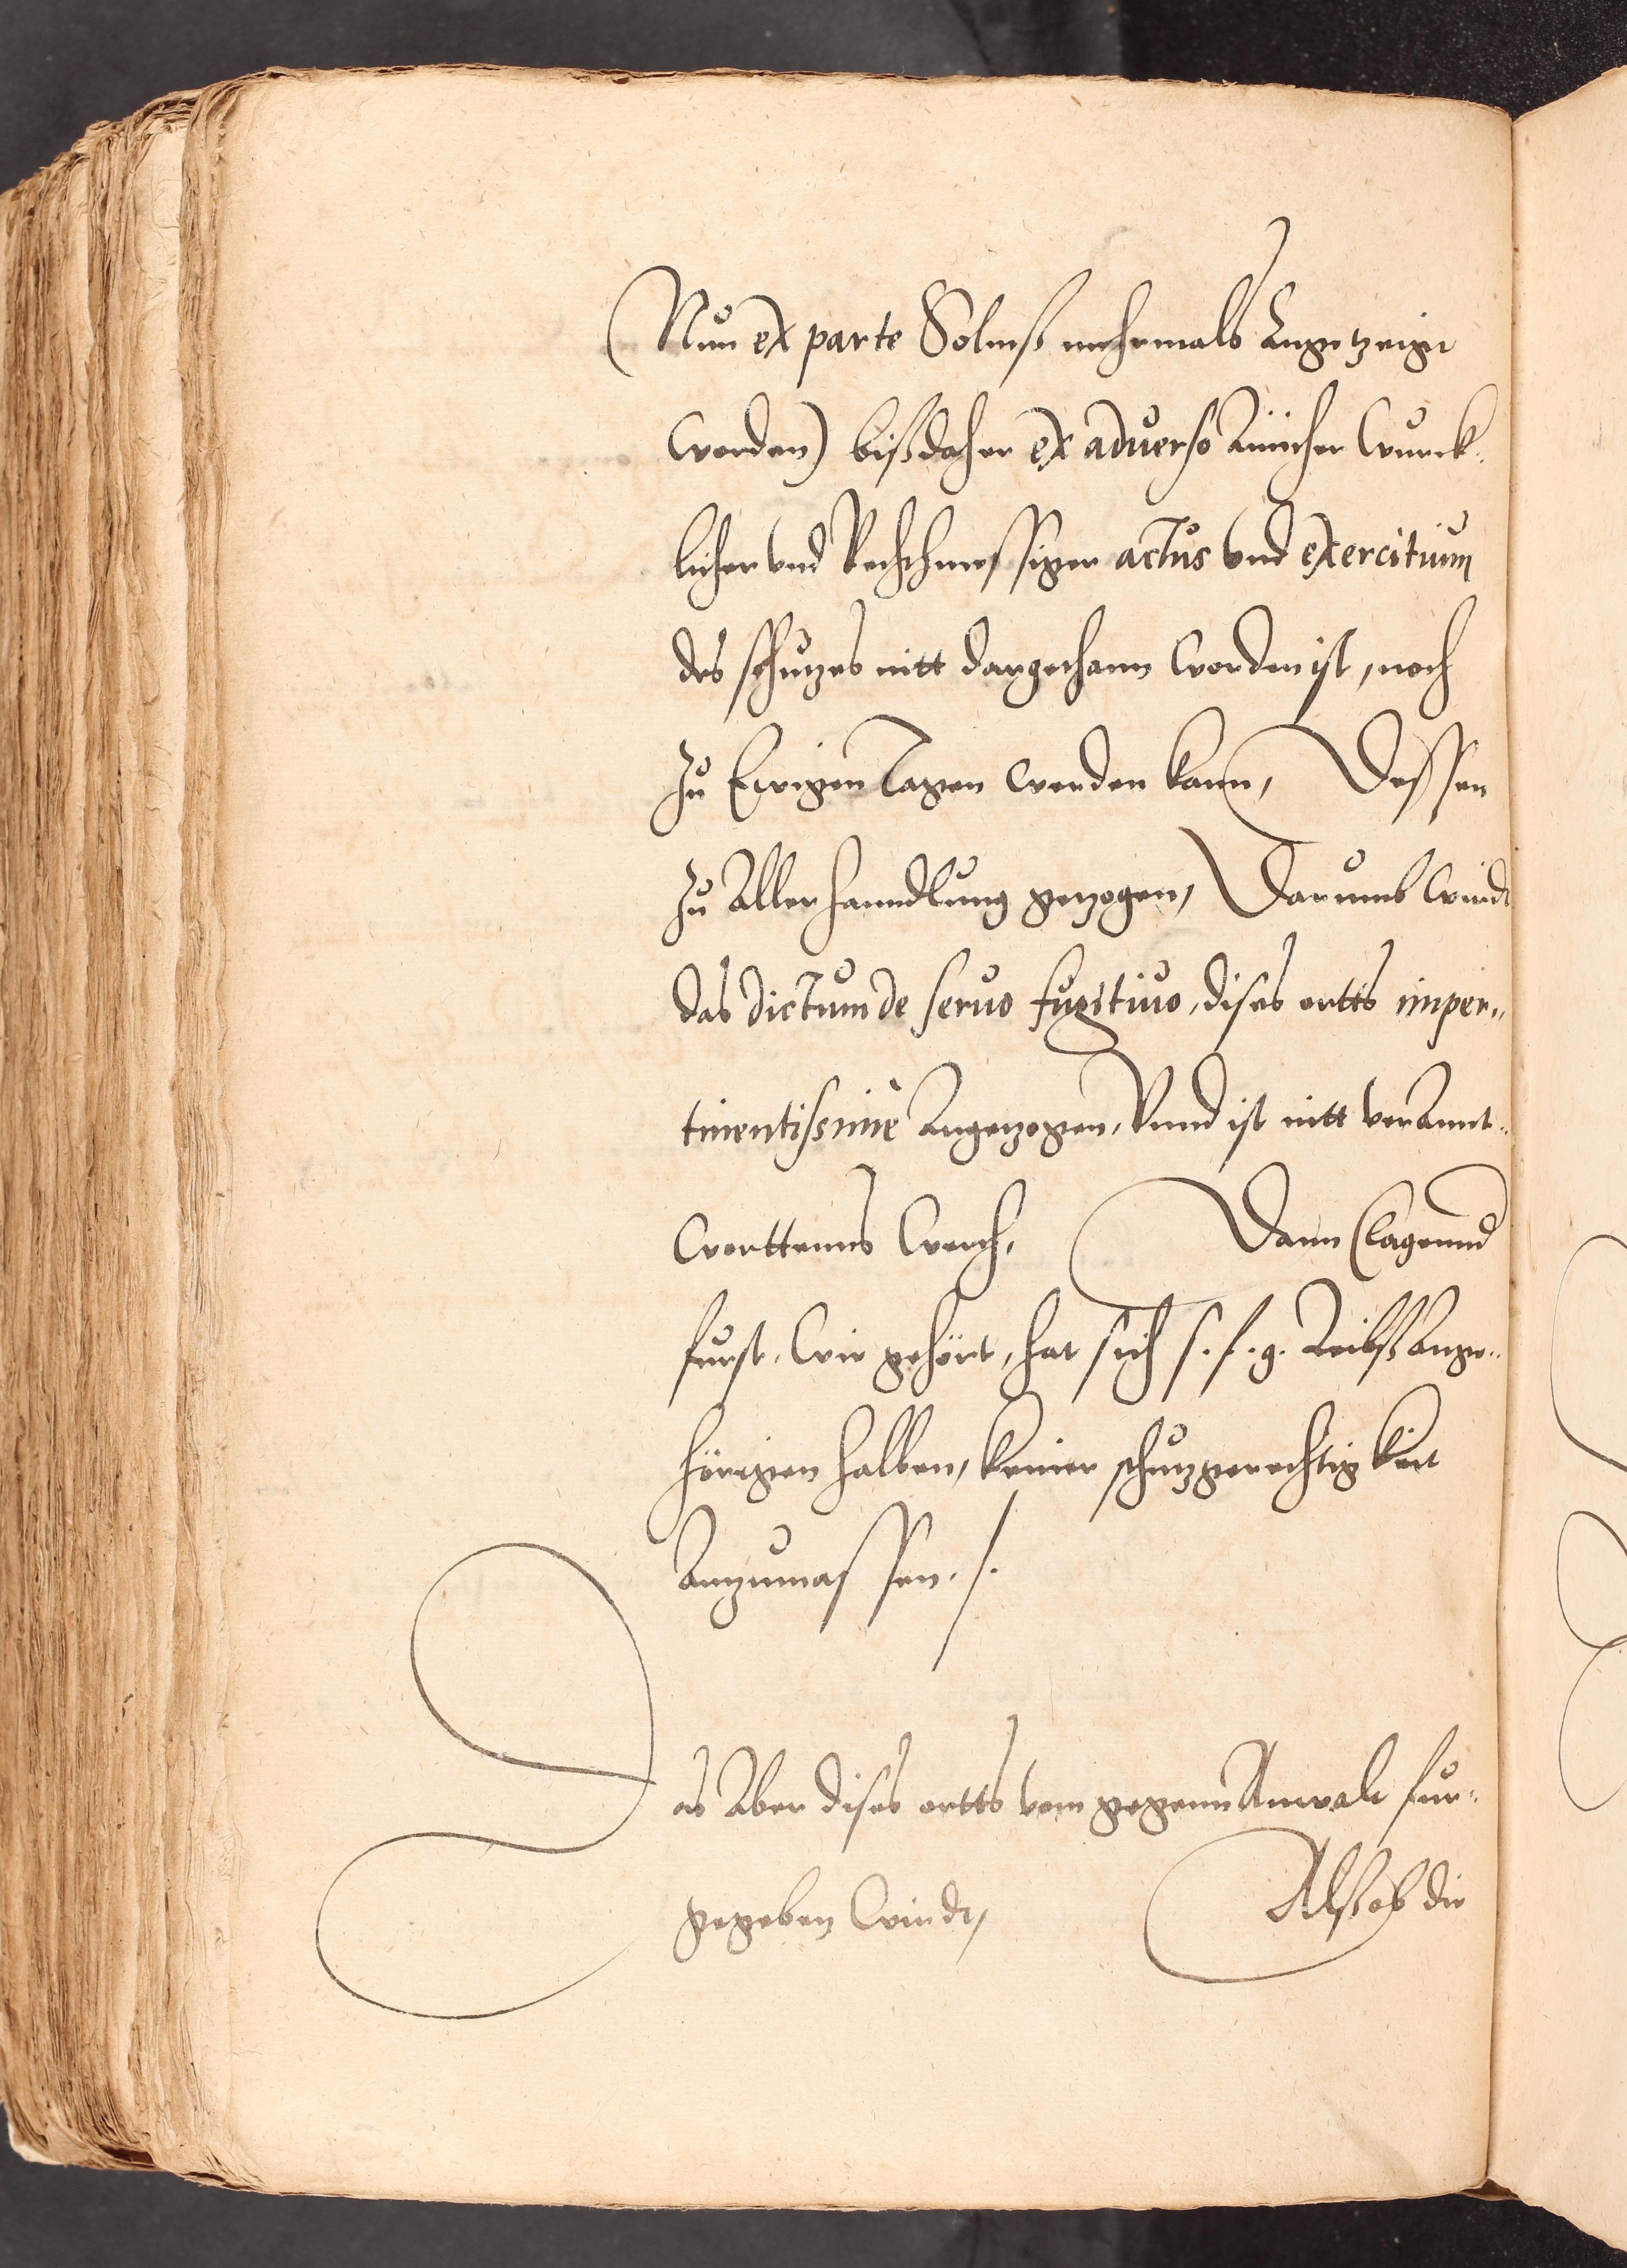 (Nun ex parte Solmß mehrmals Angetzeigt
worden) bißdaher ex aduerso Einicher wurck-
licher vnd Rechtmessiger actus vnd exercitium
des schutzes nitt dargethann worden ist, noch
zu Ewigen Tagen werden kann, Dessen
zu Aller hanndlung gezogen, Darumb wirdt
das dictum de seruo fugitiuo, dises ortts imper-
tinentissimè Angezogen, Vnnd ist nitt verAnnt-
worttenns werth, Dann Clagennd
furst, wie gehört, hat sich s. f. g. Leibß Ange-
hörigen halben, keiner schutzgerechtigkeit
Anzumassen ./.
Das Aber dises ortts vom gegenn Anwalt fur-
gegeben wirdt, Alß ob die